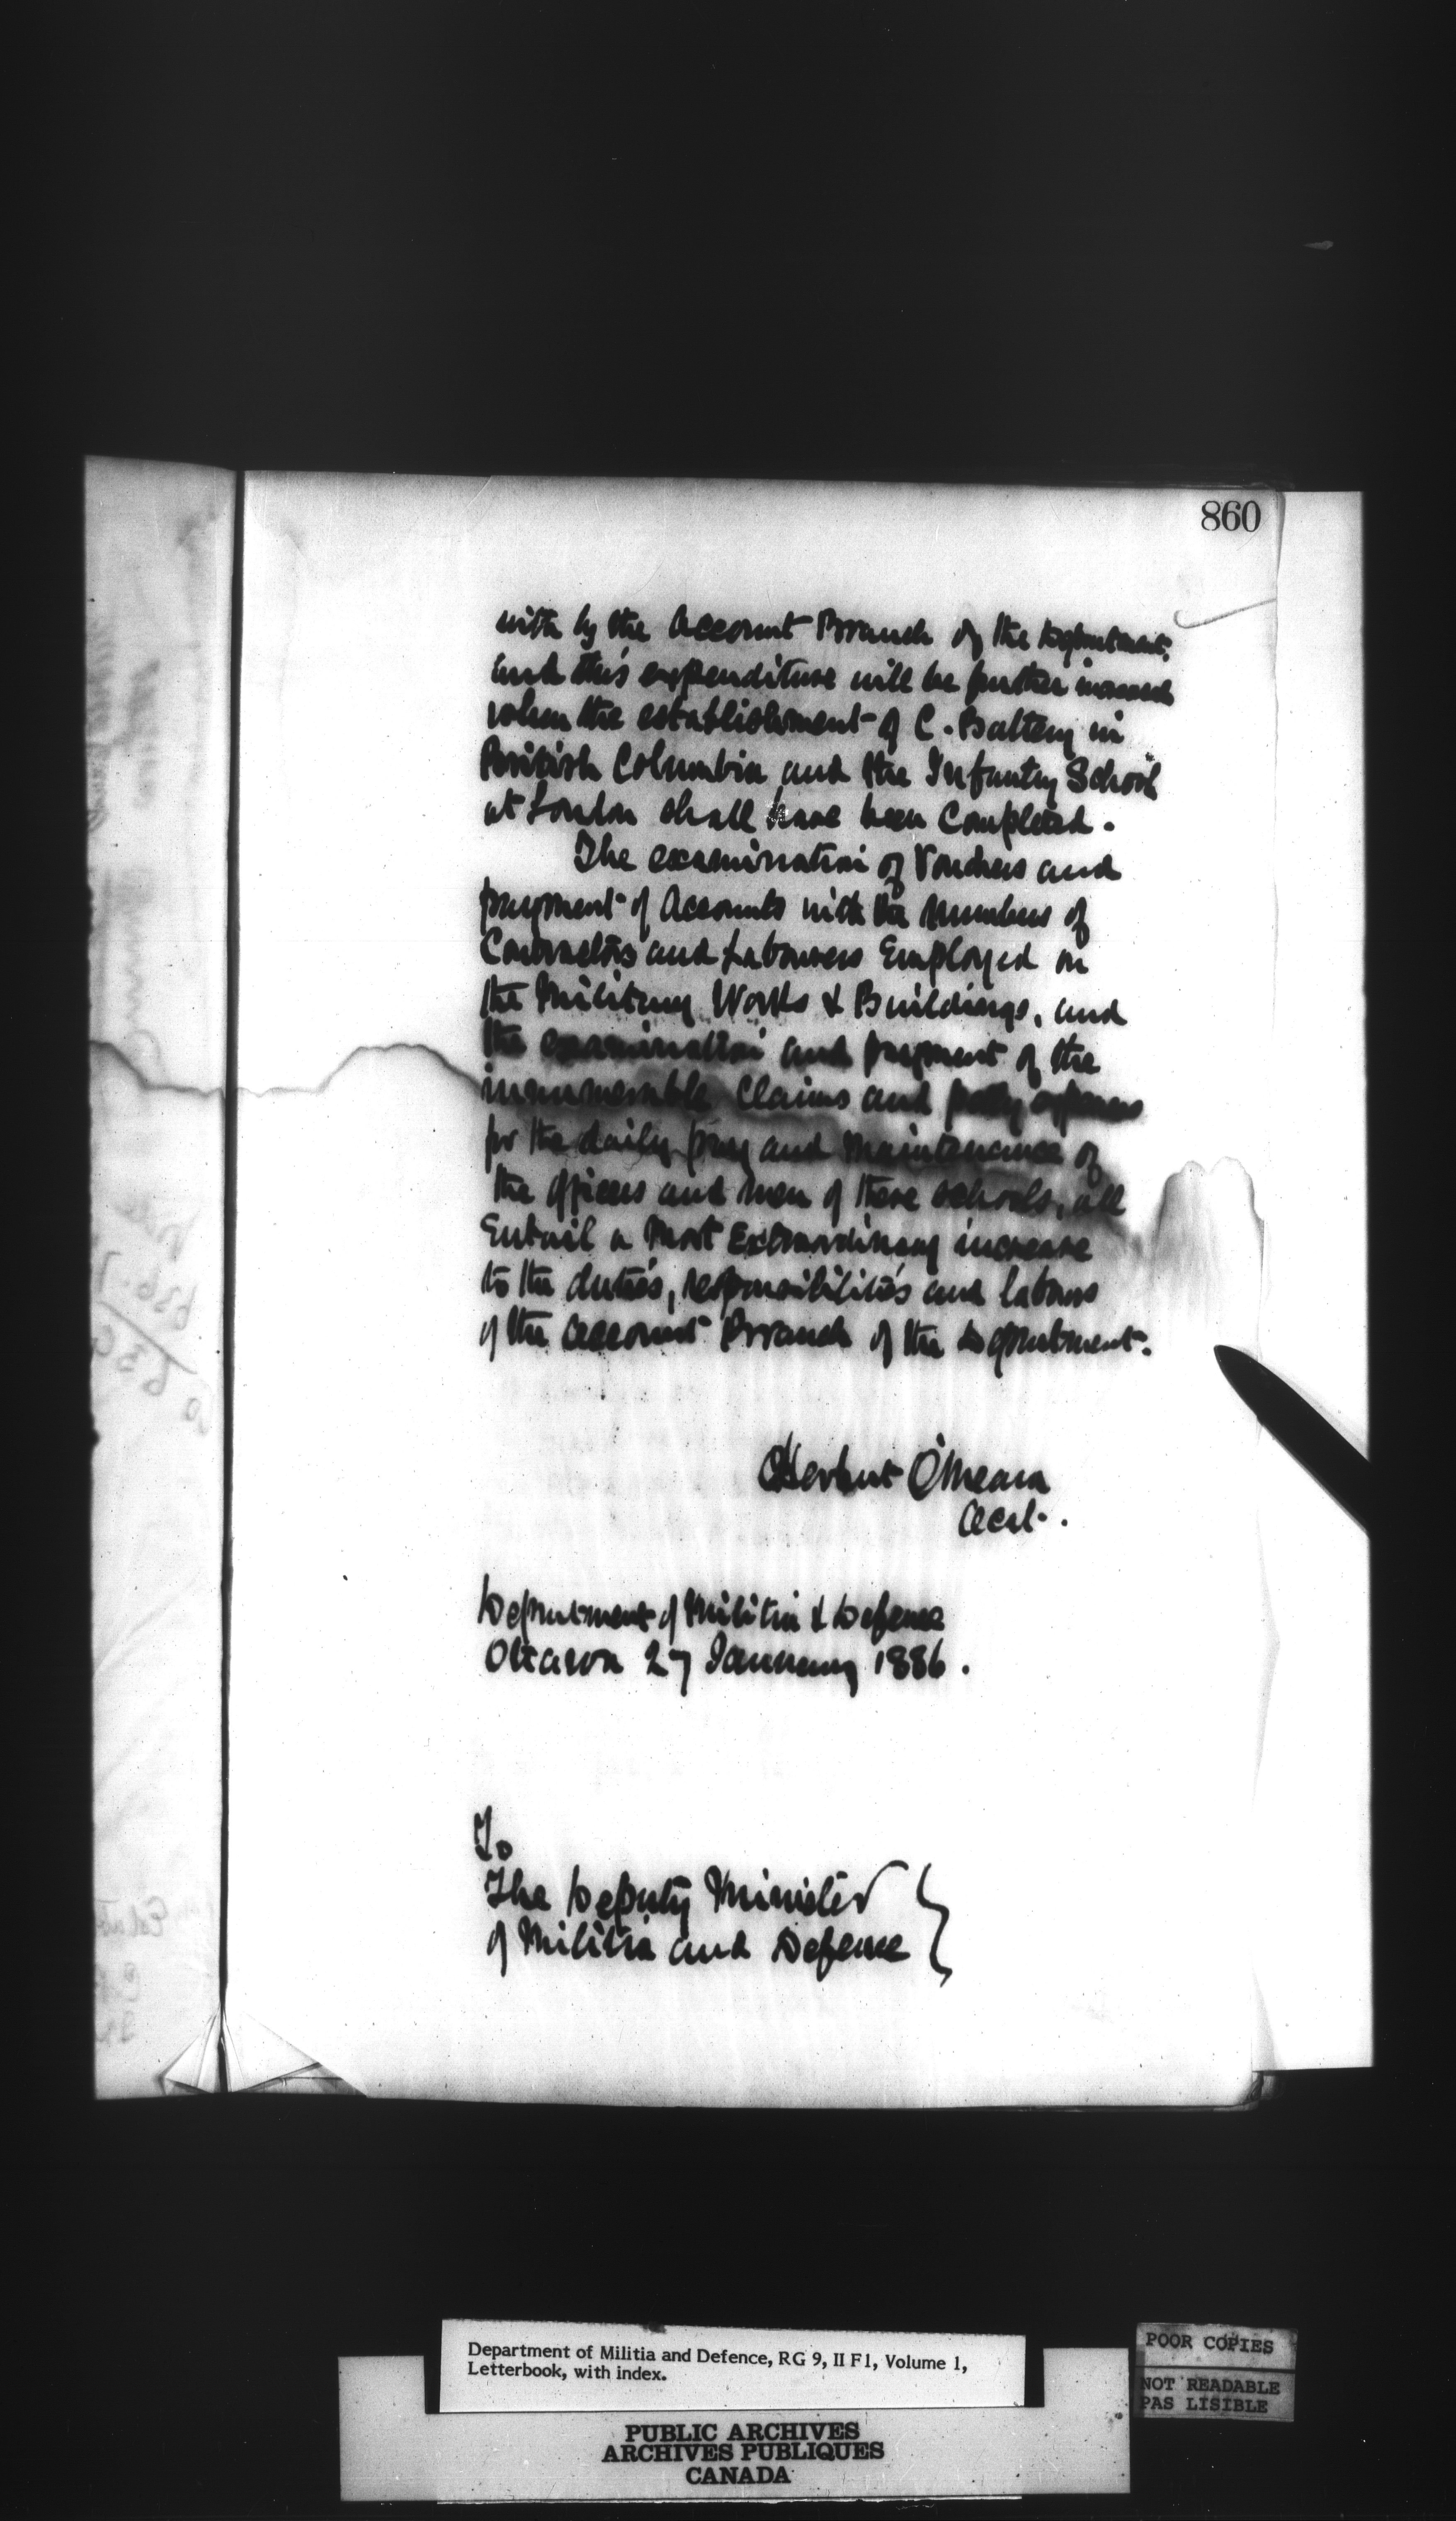 860
with by the Account Branch of the Department.
and this expenditure will be further increased
when the establishment of C. Battery in
British Columbia and the Infantry School
at London shall have been Completed.
The examination of Vouchers and
payment of Accounts with the numbers of
Contractors and Labourers Employed on
the Military Works & Buildings, and
the examination and payment of the
innumerable Claims and petty expenses
for the daily pay and maintenance of
the officers and men of these schools, all
Entail a most Extraordinary increase
to the duties, responsibilities and labours
of the Account Branch of the Department.
Herbert O'Meara
Acct.
Department of Militia & Defence
Ottawa 27 January 1886.
To
The Deputy Minister
of Militia and Defence
Department of Militia and Defence, RG 9, II F1, Volume 1,
Letterbook, with index.
PUBLIC ARCHIVES
ARCHIVES PUBLIQUES
CANADA
POOR COPIES
NOT READABLE
PAS LISIBLE